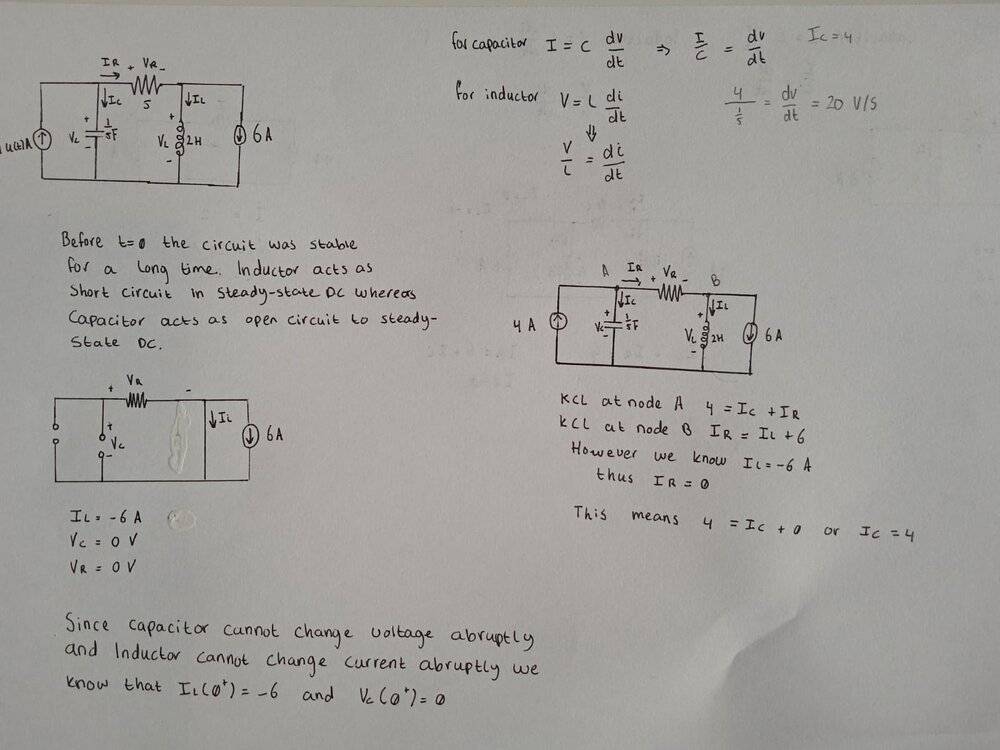 for capacitor I = C dv/dt ⇒ I/C = dv/dt Ic = 4
for inductor V = L di/dt
4/(1/5) = dv/dt = 20 V/S
⇓
V/L = di/dt
IR + VR -
5
Ic
IL
u(t)A
+ Vc - 1/5F
+ VL - 2H
6 A
Before t=0 the circuit was stable
for a long time. Inductor acts as
Short circuit in steady-state DC whereas
Capacitor acts as open circuit to steady-
State DC.
A IR + VR - B
Ic
IL
4 A
+ Vc - 1/5F
+ VL - 2H
6 A
+ VR -
+ Vc -
IL
6A
IL = -6 A
Vc = 0 V
VR = 0 V
KCL at node A 4 = Ic + IR
KCL at node B IR = IL + 6
However we know IL = -6 A
thus IR = 0
This means 4 = Ic + 0 or Ic = 4
Since capacitor cannot change voltage abruptly
and Inductor cannot change current abruptly we
know that IL(0⁺) = -6 and Vc(0⁺) = 0